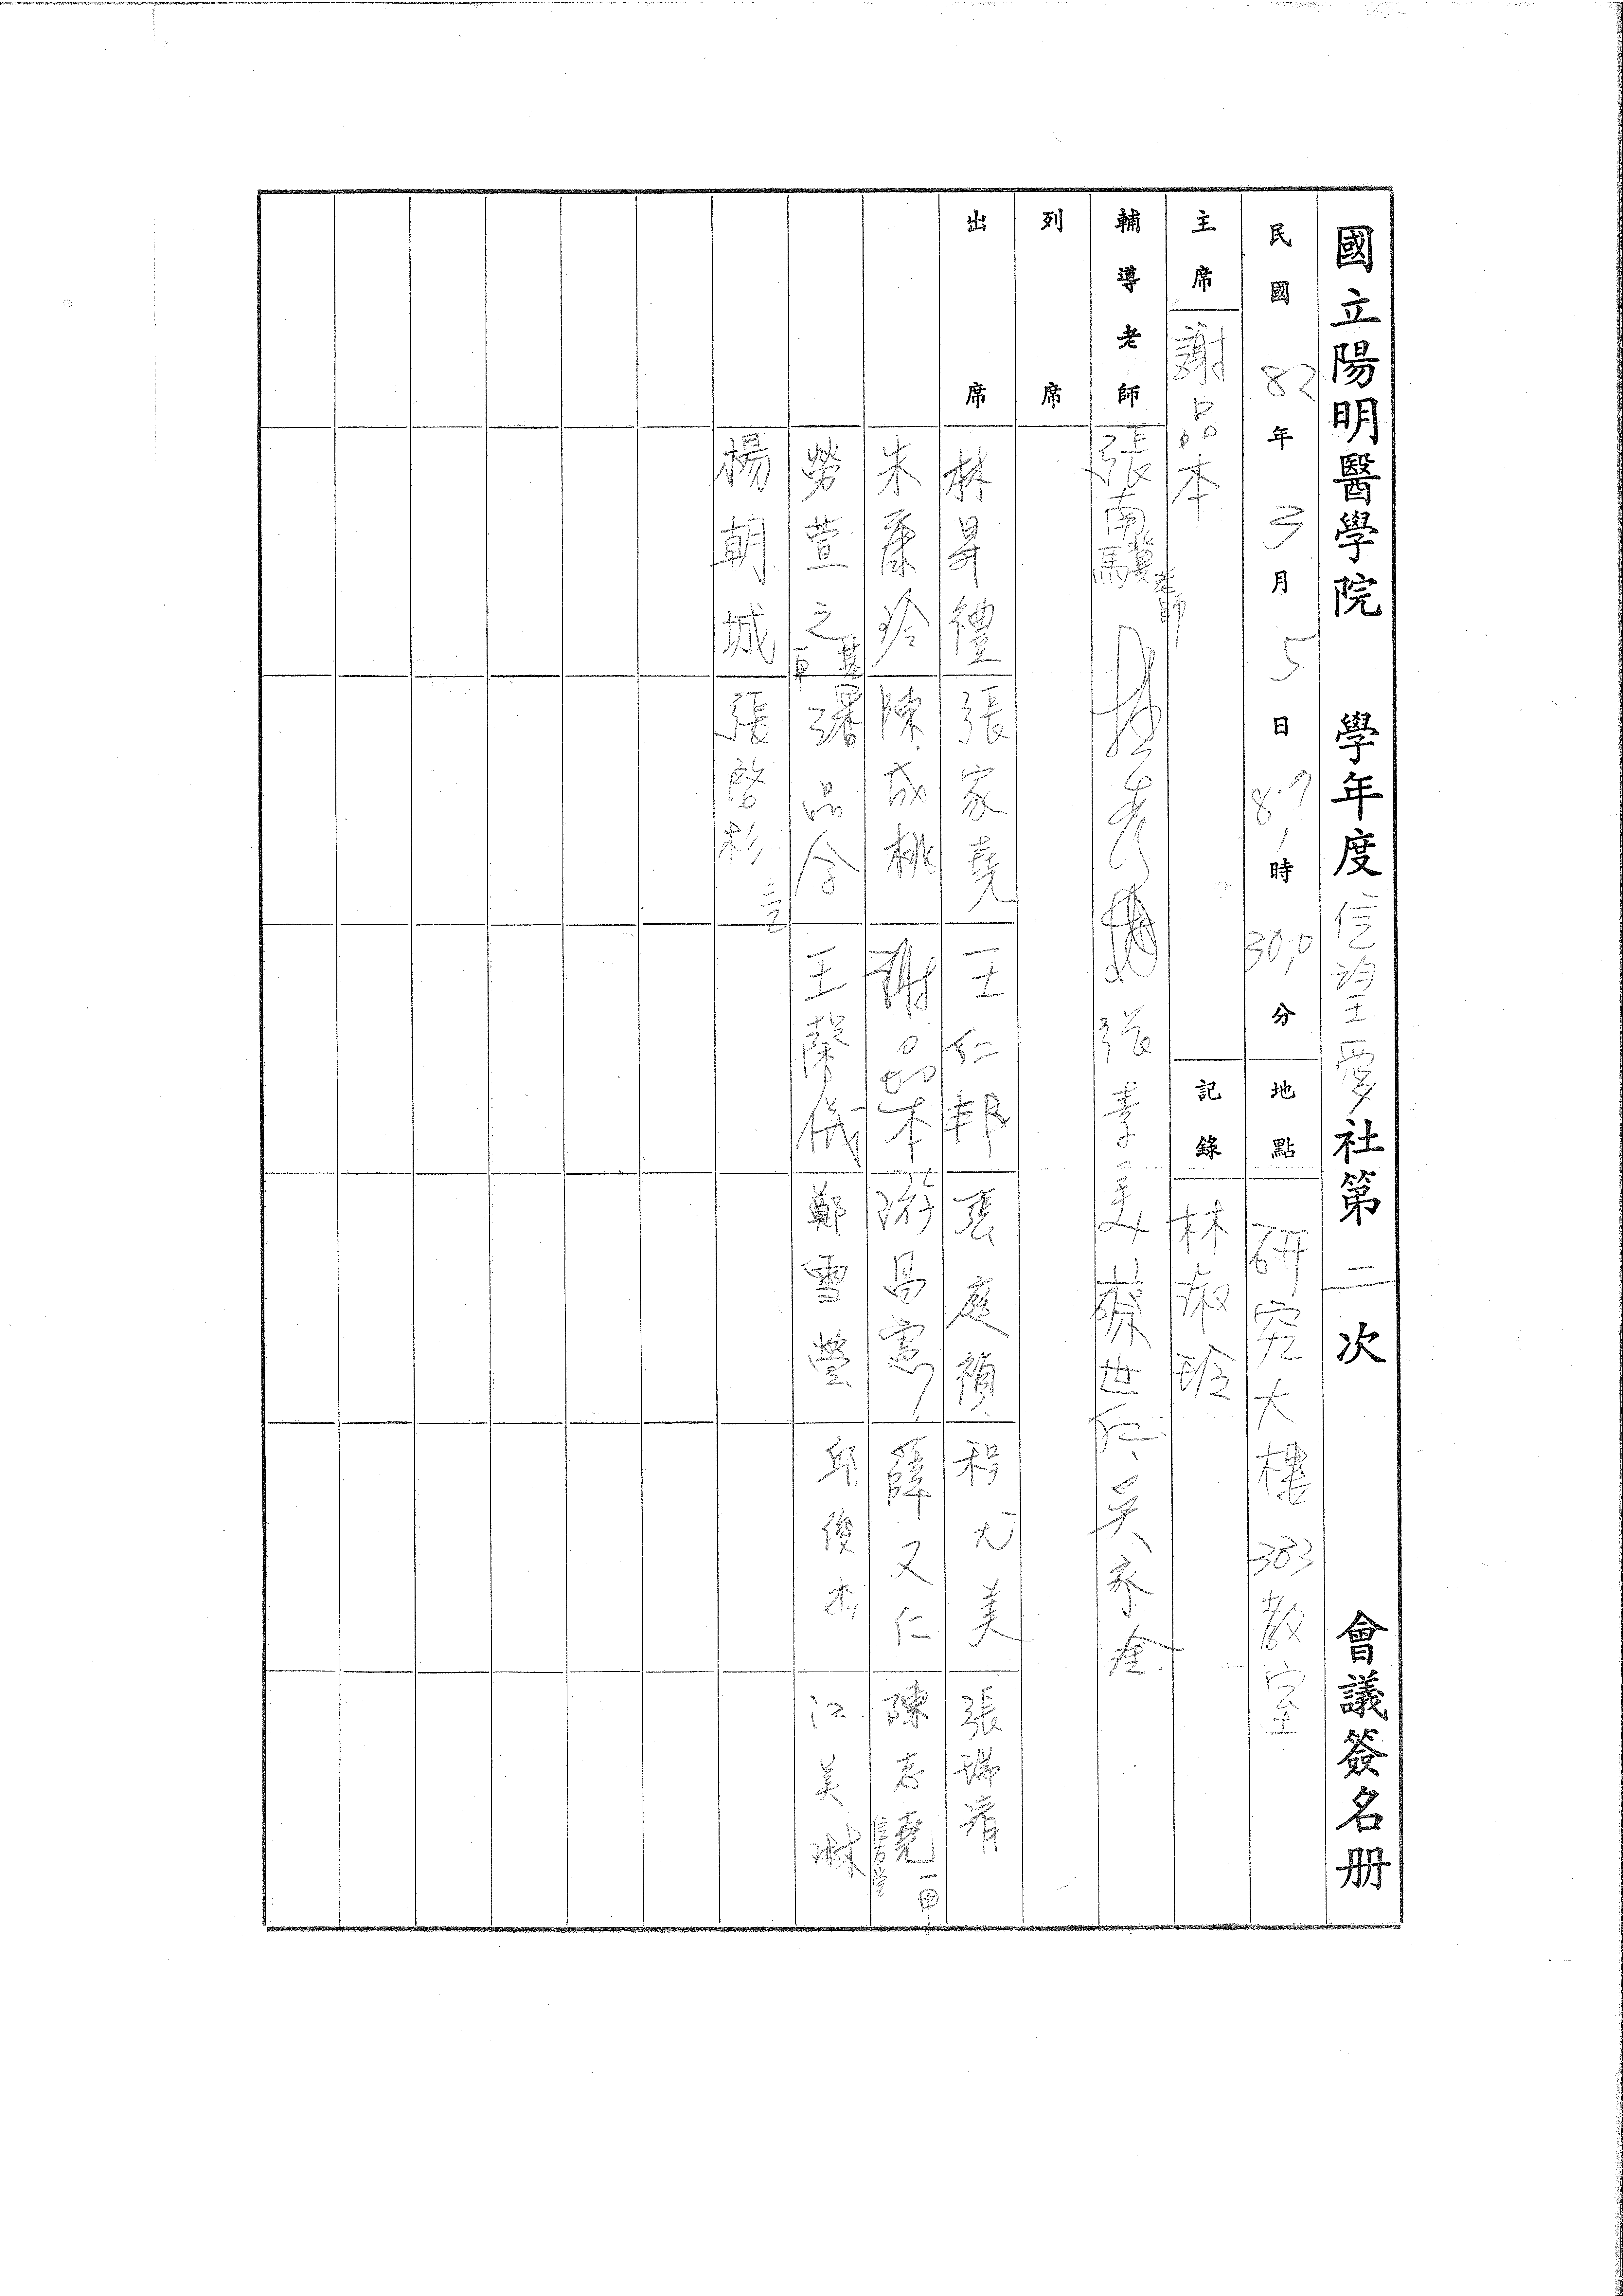 國立陽明醫學院 學年度信望愛社第二次 會議簽名册
民國 82 年 3 月 5 日 時 30 分 地點 研究大樓 383 教室
主席 謝品本 記錄 林淑玲
輔導老師 張南驥老師 蔡世仁 吳家
列席
出席 林昇禮 張家堯 王仁邦 張庭禎 程尤美 張瑞清
朱康玲 陳成桃 謝品本 游昌憲 薛又仁 陳志堯 一甲 信友堂
勞萱之 品今 王馨儀 鄭雪瑩 邱俊杰 江美琳
楊朝城 張啓杉